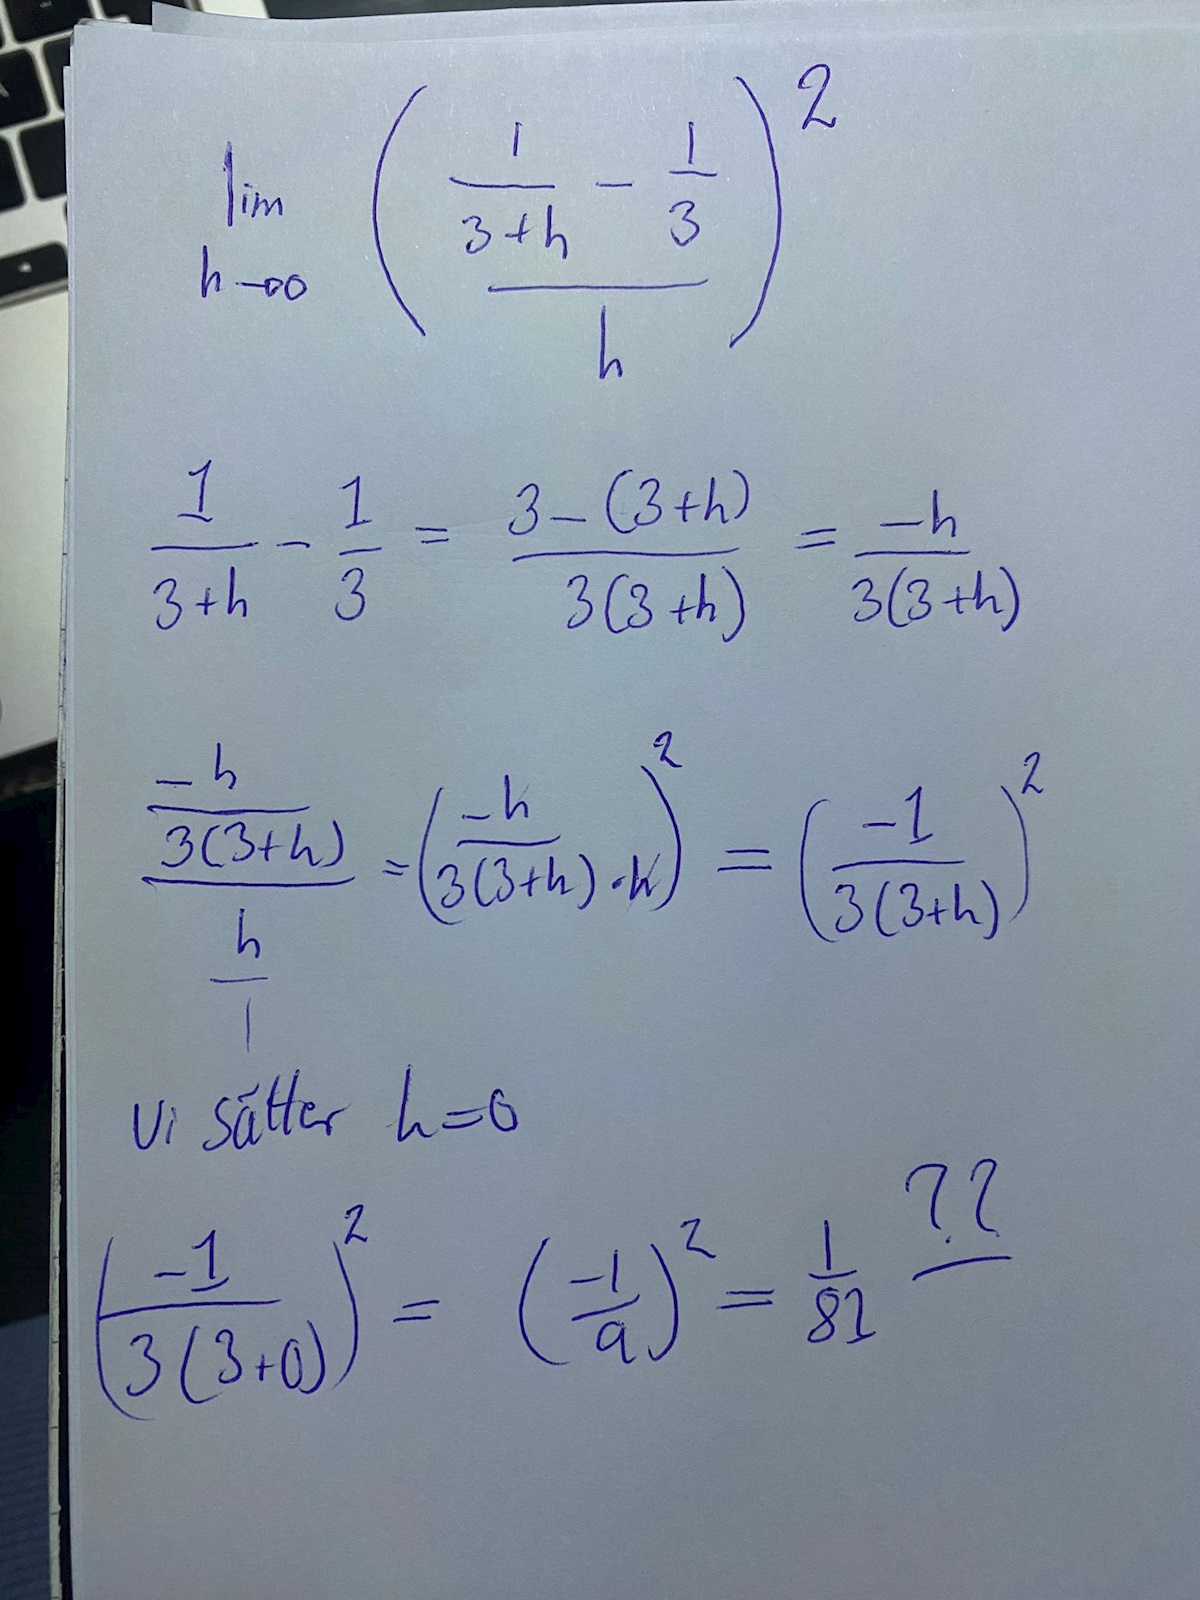 lim h→∞ ((1/(3+h) - 1/3)/h)^2
1/(3+h) - 1/3 = (3-(3+h))/(3(3+h)) = -h/(3(3+h))
(-h/(3(3+h)))/(h/1) = (-h/(3(3+h)·h))^2 = (-1/(3(3+h)))^2
Vi sätter h=0
(-1/(3(3+0)))^2 = (-1/9)^2 = 1/81 ??